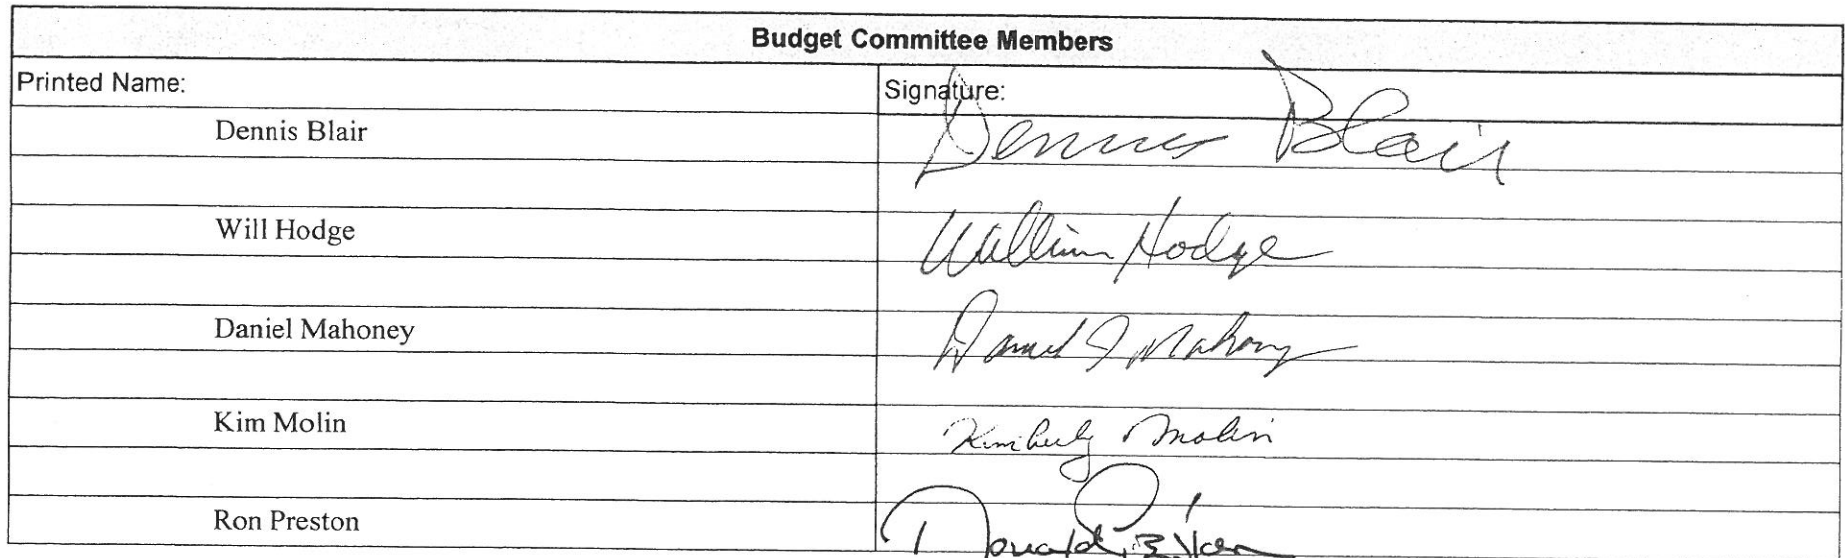 Budget Committee Members
Printed Name: Signature:
Dennis Blair Dennis Blair
Will Hodge William Hodge
Daniel Mahoney Daniel J Mahoney
Kim Molin Kimberly Molin
Ron Preston